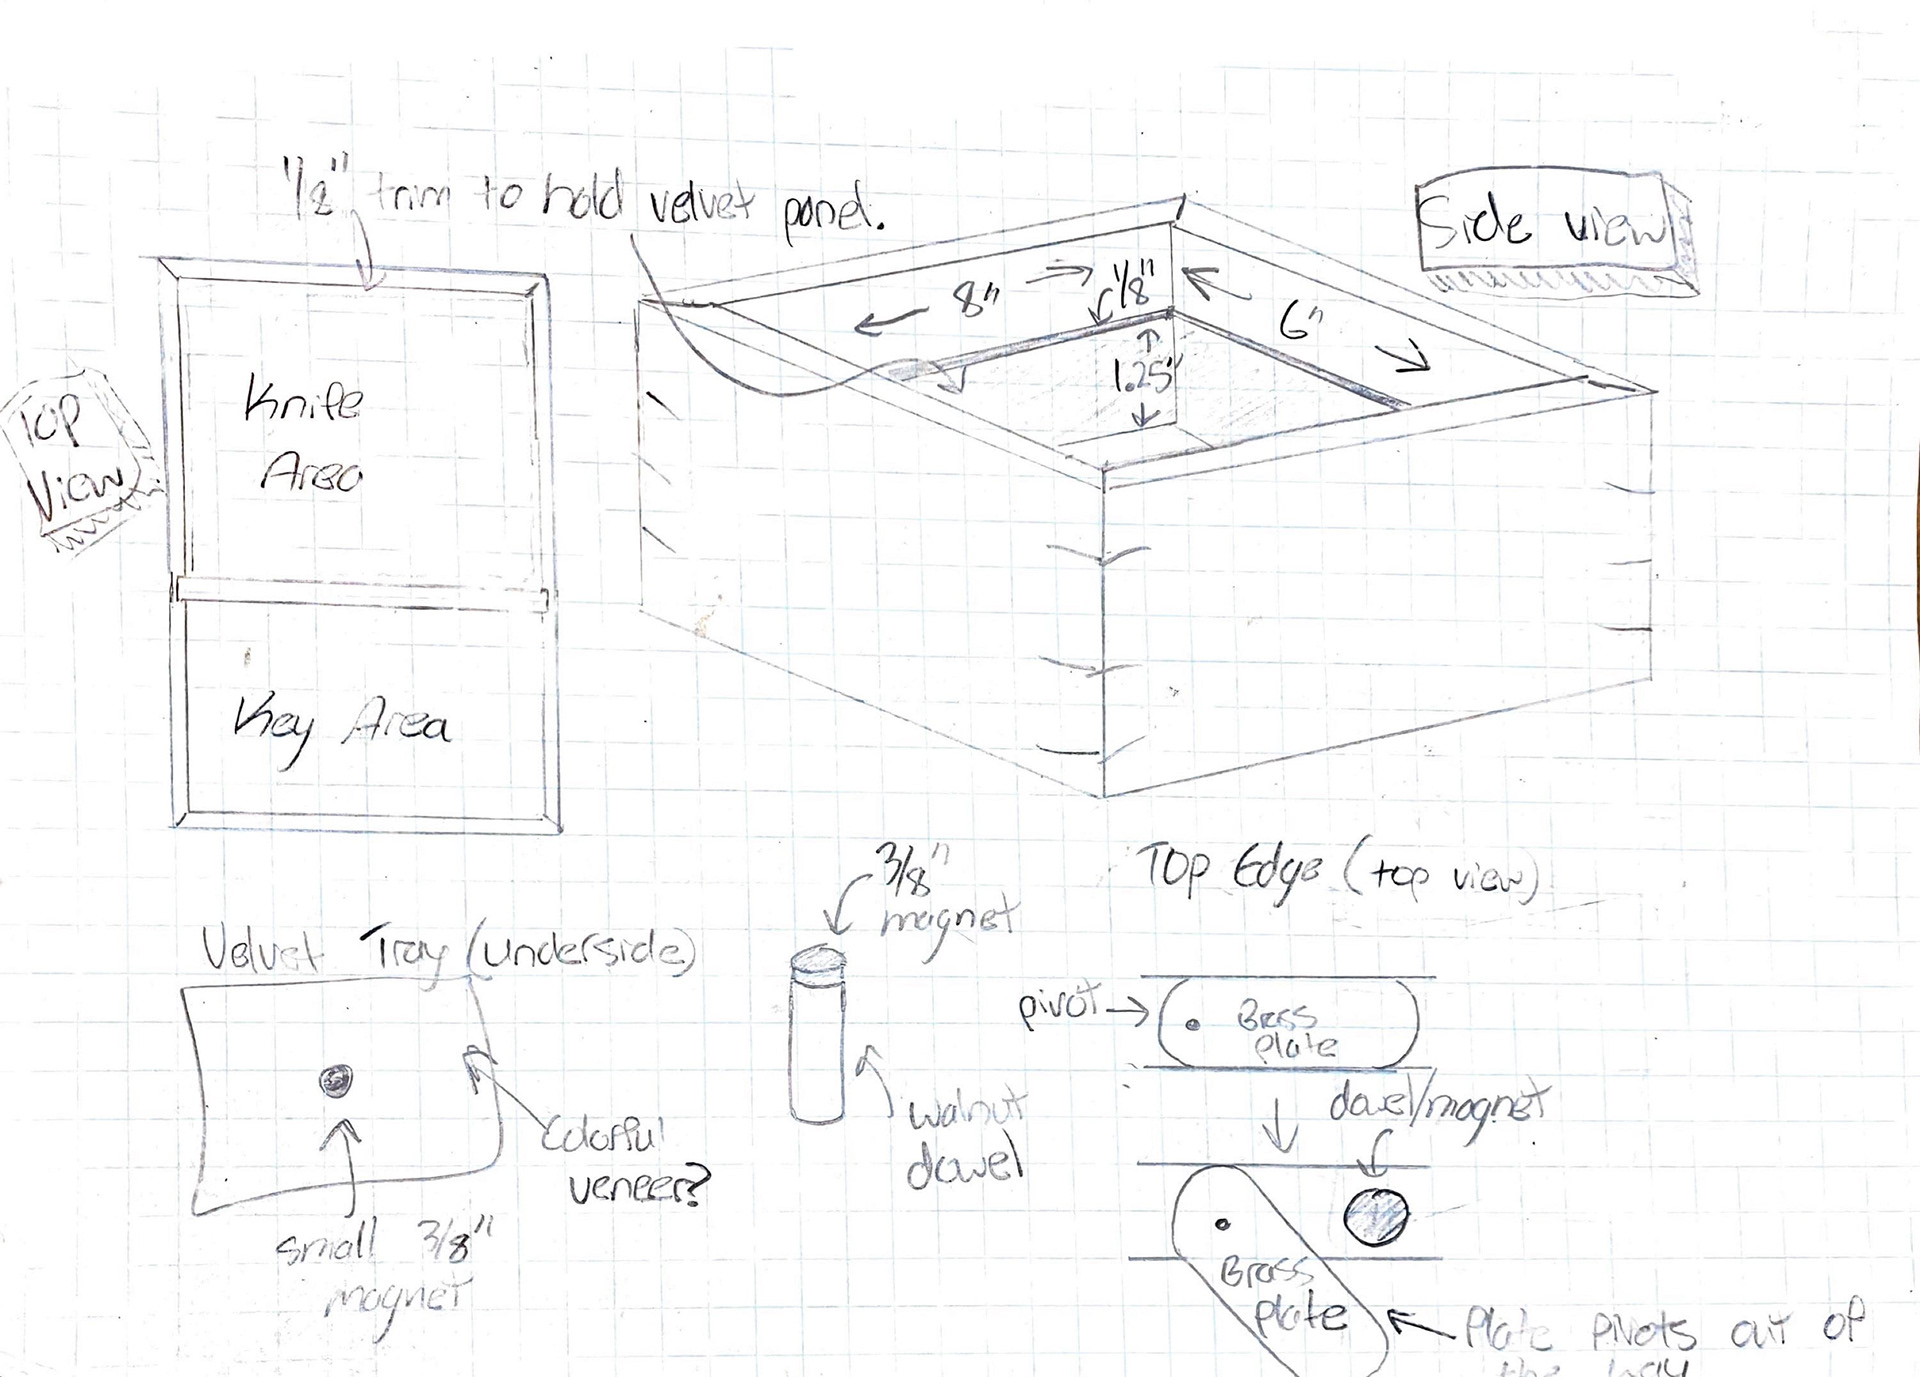 1/8" trim to hold velvet panel.
Side view
8"
1/8"
6"
1.25"
Top
View
Knife
Area
Key Area
Velvet Tray (underside)
Colorful
veneer?
small 3/8"
magnet
3/8"
magnet
walnut
dowel
Top Edge (top view)
pivot
Brass
plate
dowel/magnet
Brass
plate
Plate pivots out of
the way